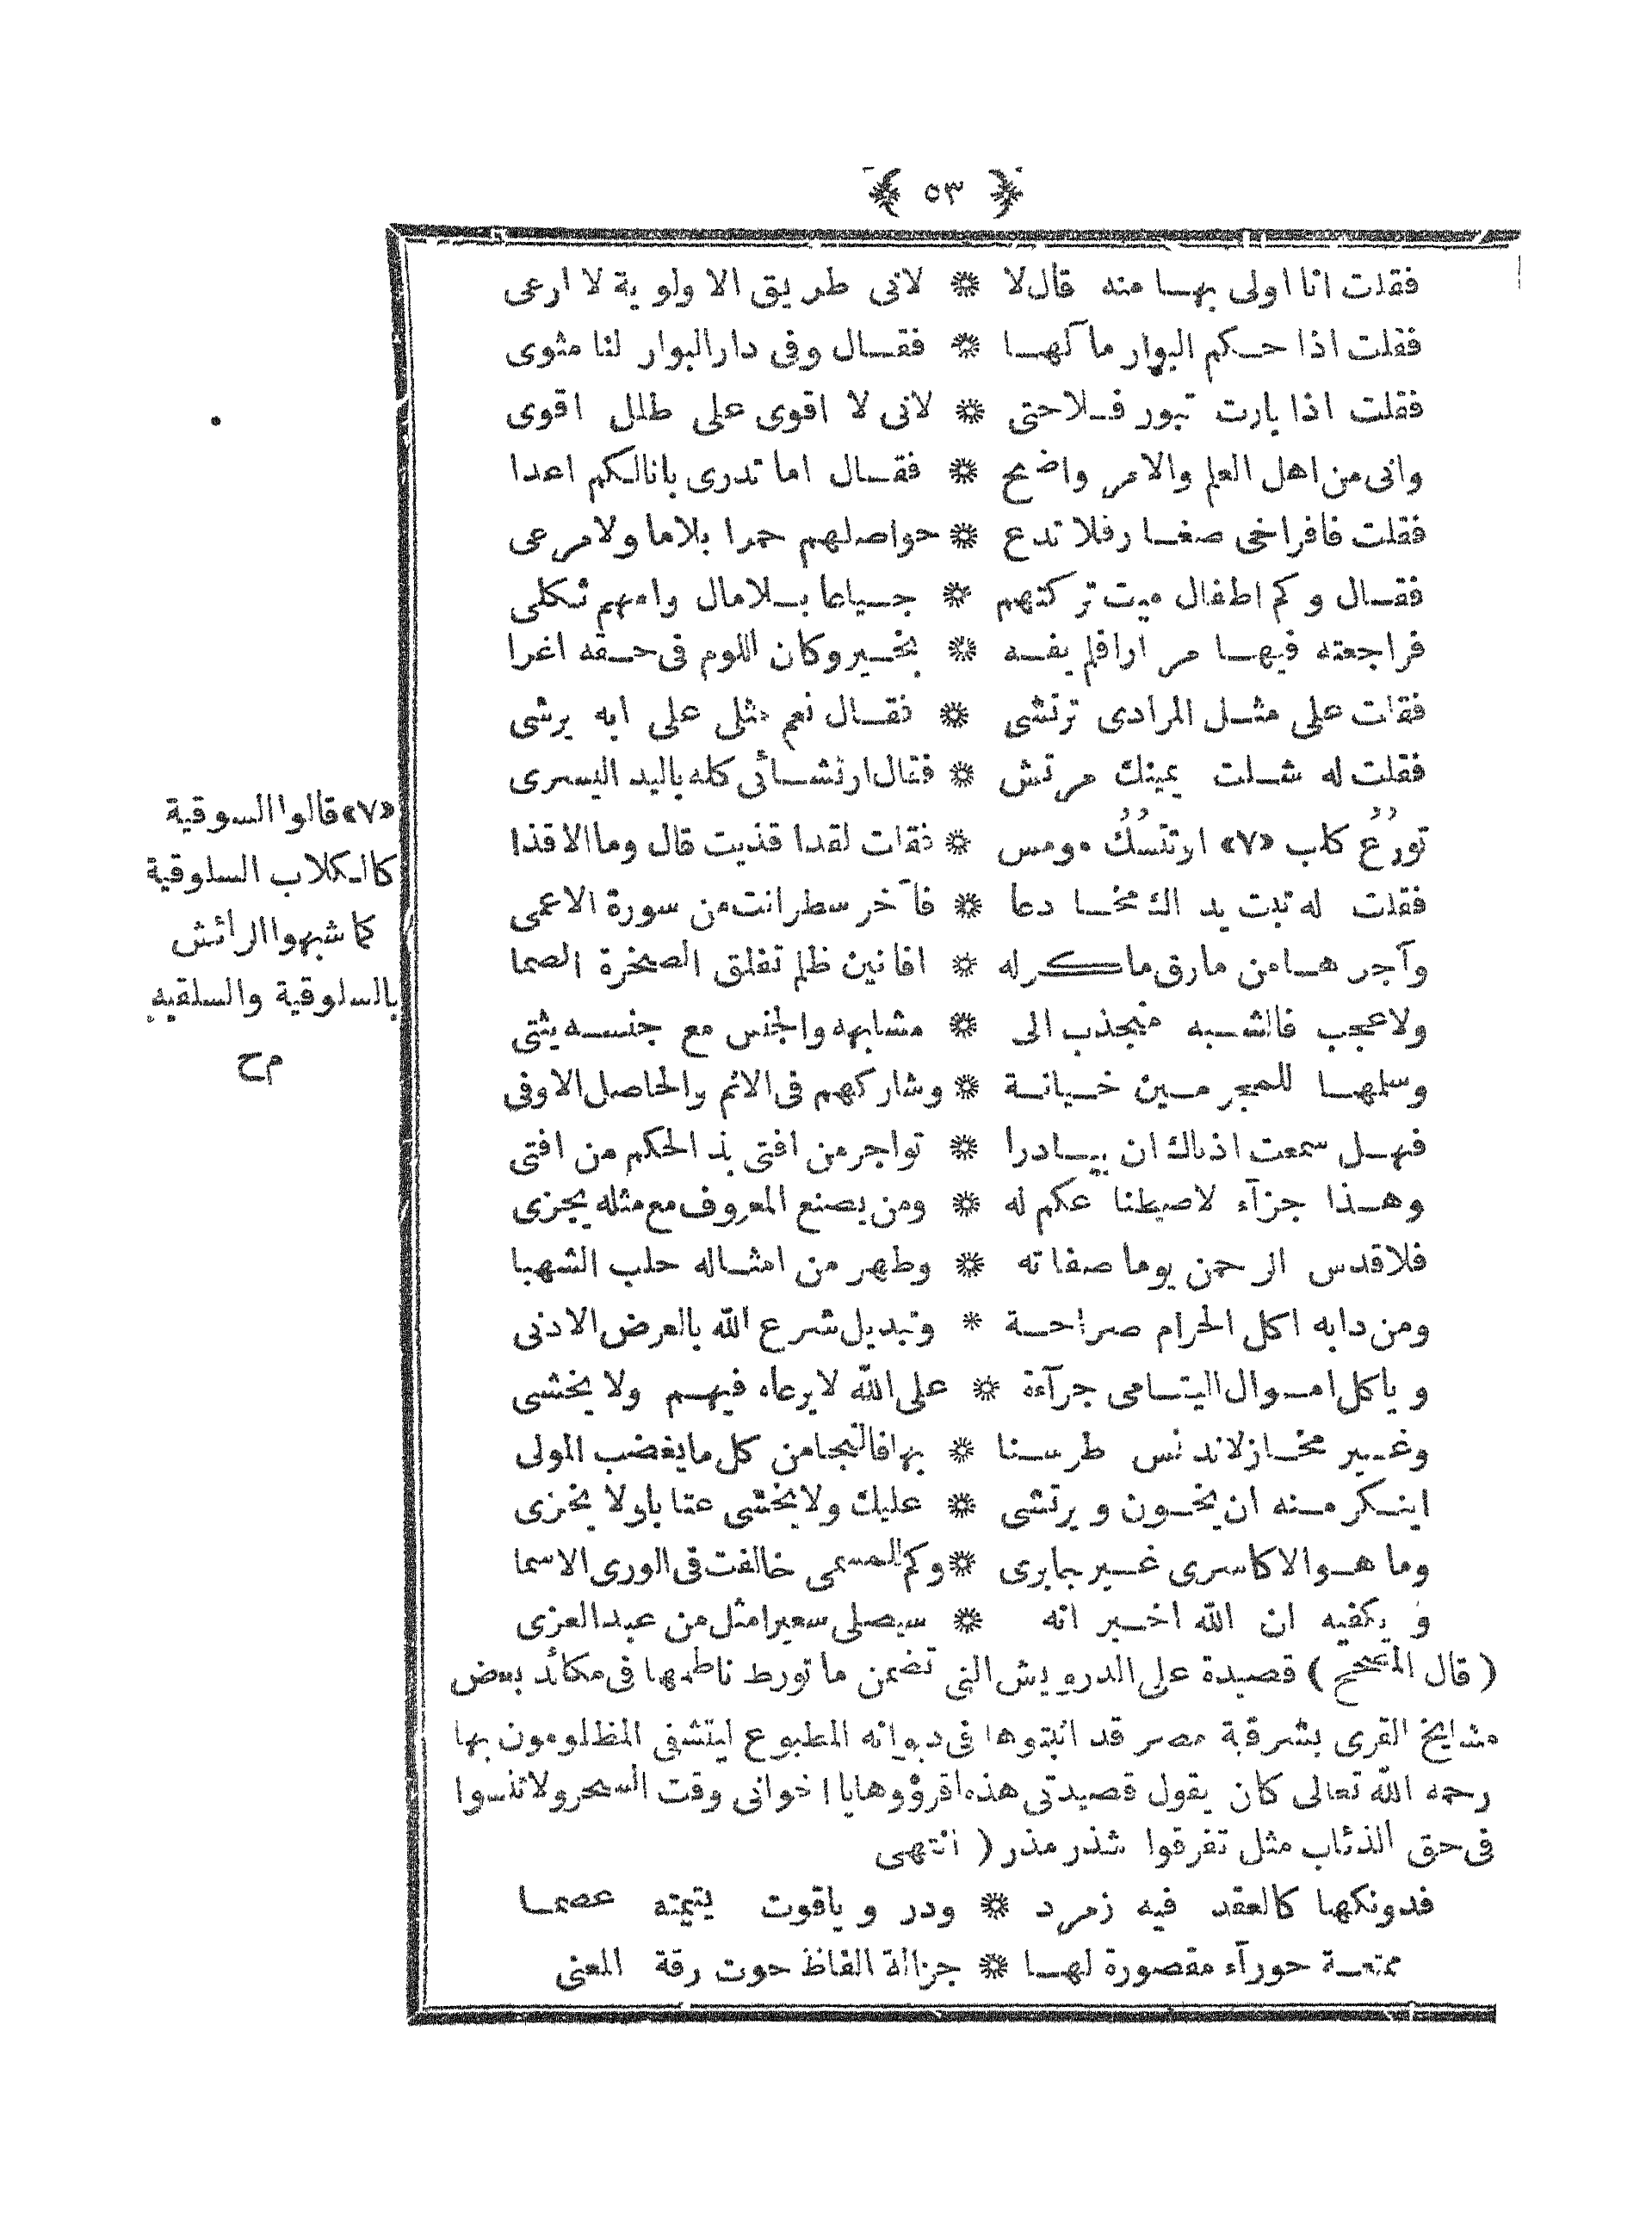 ﴿ ٥٣ ﴾
فقلت انا اولى بهـا منه قال لا ❊ لانى طريق الاولوية لا ارعى
فقلت اذا حـكم البوار مآ لهـا ❊ فقـال وفى دار البوار لنا مثوى
فقلت اذا بارت تبور فـلاحتى ❊ لانى لا اقوى على طلل اقوى
وانى من اهل العلم والامر واضح ❊ فقـال اما تدرى بانا لـكم اعدا
فقلت فافراخى صغـار فلا تدع ❊ حواصلهم حمرا بلاما ولا مرعى
فقـال وكم اطفال ميت تركتهم ❊ جـياعا بـلا مال وامهم ثـكلى
فراجعته فيهـا مرارا فلم يفـه ❊ بخـير وكان اللوم فى حـقه اغرا
فقلت على مثـل المرادى ترتشى ❊ فقـال نعم مثلى على ابه يرشى
فقلت له شـلت يمينك مرتش ❊ فقال ارتشـائى كله باليد اليسرى
تورُّع كلب «٧» ارتنسُّك مومس ❊ فقلت لقدا قذيت قال وما الاقذا
فقلت له تبت يداك مخـادعا ❊ فآخر سطر انت من سورة الاعمى
وآجرهـا من مارق ماكـر له ❊ افانين ظلم تفلق الصخرة الصما
ولا عجب فالشـبه منجذب الى ❊ مشابهه والجنس مع جنسـه يثنى
وسلمهـا للمجرمـين خـيانـة ❊ وشاركهم فى الاثم والحاصل الاوفى
فهـل سمعت اذناك ان بيـادرا ❊ تواجر من افتى بذ الحكم من افتى
وهـذا جزآء لاصيطنا عكم له ❊ ومن يصنع المعروف مع مثله يجزى
فلا قدس الرحمن يوما صفاته ❊ وطهر من امثـاله حلب الشهبا
ومن دابه اكل الحرام صراحـة * وتبديل شرع الله بالعرض الادنى
وياكل امـوال اليتـامى جرآءة ❊ على الله لا يرعاه فيهـم ولا يخشى
وغـير مخـاز لاندنس طرسـنا ❊ بها فالتجا من كل ما يغضب المولى
اينـكر مـنه ان يخـون ويرتشى ❊ عليك ولا يخشى عقابا ولا يخزى
وما هـو الا كاسرى غـير جابرى ❊ وكم المسمى خالفت فى الورى الاسما
ويكفيه ان الله اخـبر انه ❊ سيصلى سعيرا مثل من عبد العزى
( قال المصحح ) قصيدة على الدرويش التى تضمن ما تورط ناظمها فى مكائد بعض
مشايخ القرى بشرقية مصر قد اثبتوها فى ديوانه المطبوع ليتشفى المظلومون بها
رحمه الله تعالى كان يقول قصيدتى هذه اقرؤوها يا اخوانى وقت السحر ولا تنسوا
فى حق الذئاب مثل تفرقوا شذر مذر ( انتهى
فدونكها كالعقد فيه زمرد ❊ ودر وياقوت يتيمته عصمـا
ممتعـة حورآء مقصورة لهـا ❊ جزالة الفاظ حوت رقة المعنى
«٧» قالوا السوقية
كالـكلاب السلوقية
كما شبهوا الرائش
بالسلوقية والسلقيه
م ح